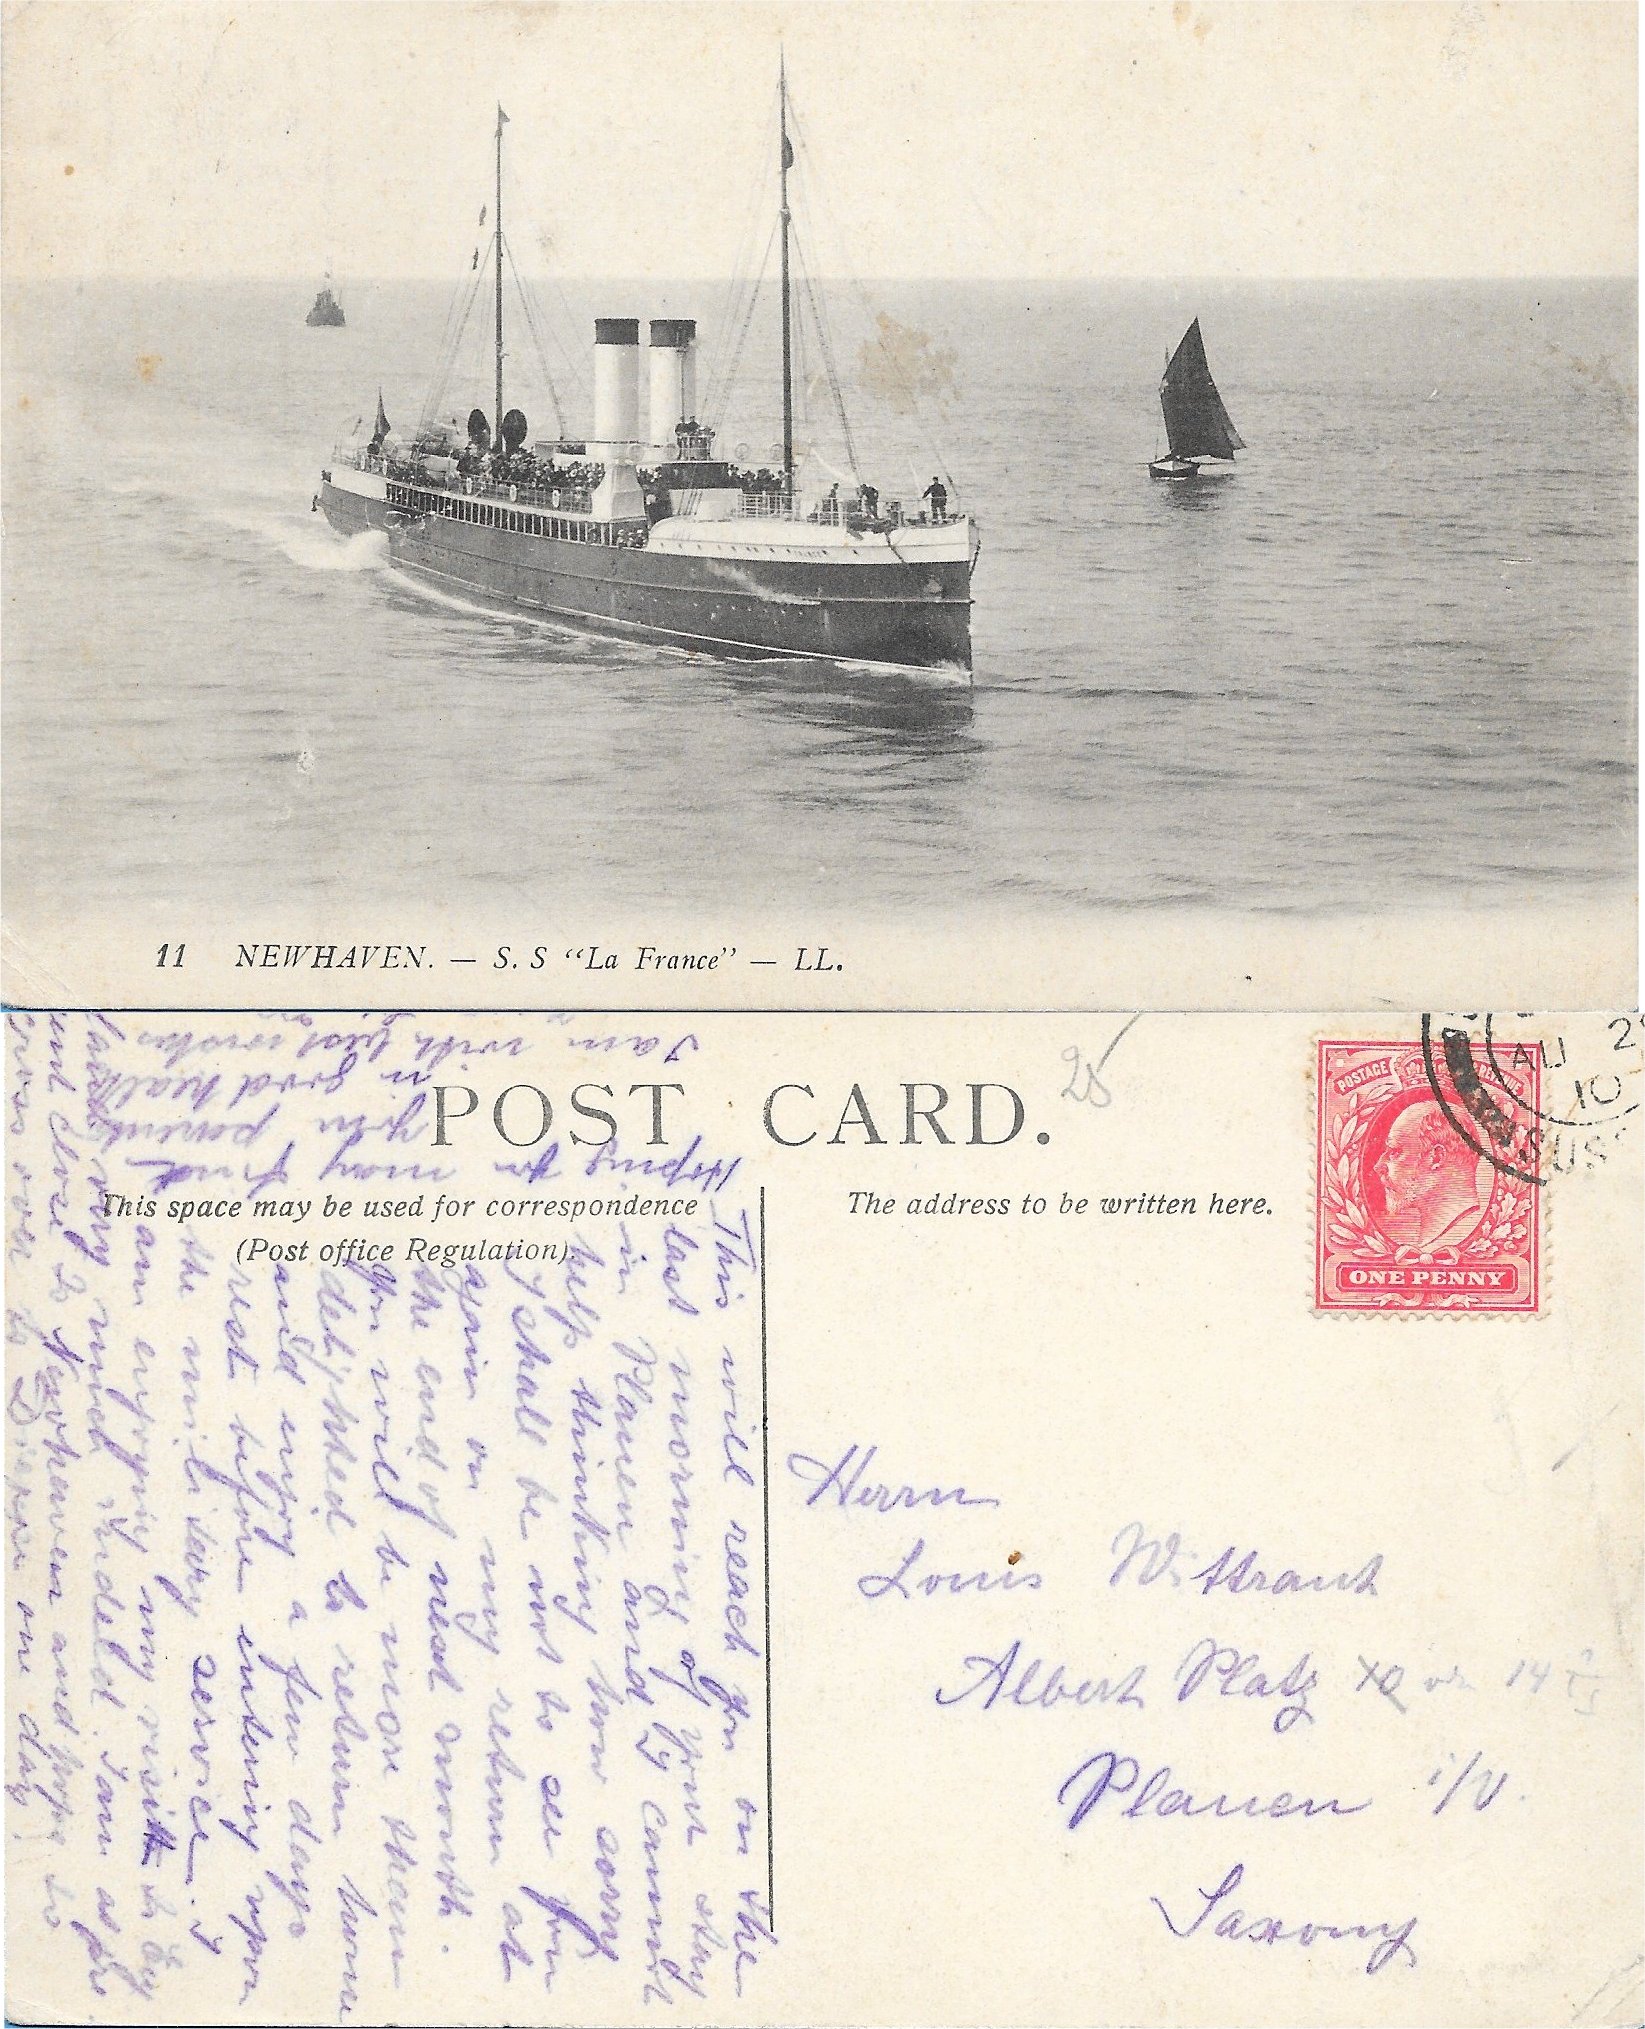 11 NEWHAVEN. — S. S "La France" — LL.
POST CARD.
25
This space may be used for correspondence
(Post office Regulation).
The address to be written here.
POSTAGE
ONE PENNY
AU 2
10
SUSS
This will reach you on the
last morning of your stay
in Plauen and I cannot
help thinking how sorry
I shall be not to see you
again on my return at
the end of next month.
You will be more than
delighted to return home
and enjoy a few days
rest before entering upon
the military service. I
am enjoying my visit to
very much indeed. I am as you
and close to Newhaven and hope to
cross over to Dieppe one day.
Hoping you may find
your parents
in good health
I am with best wishes
Herrn
Louis Wittrant
Albert Platz 14
Plauen i/V.
Saxony